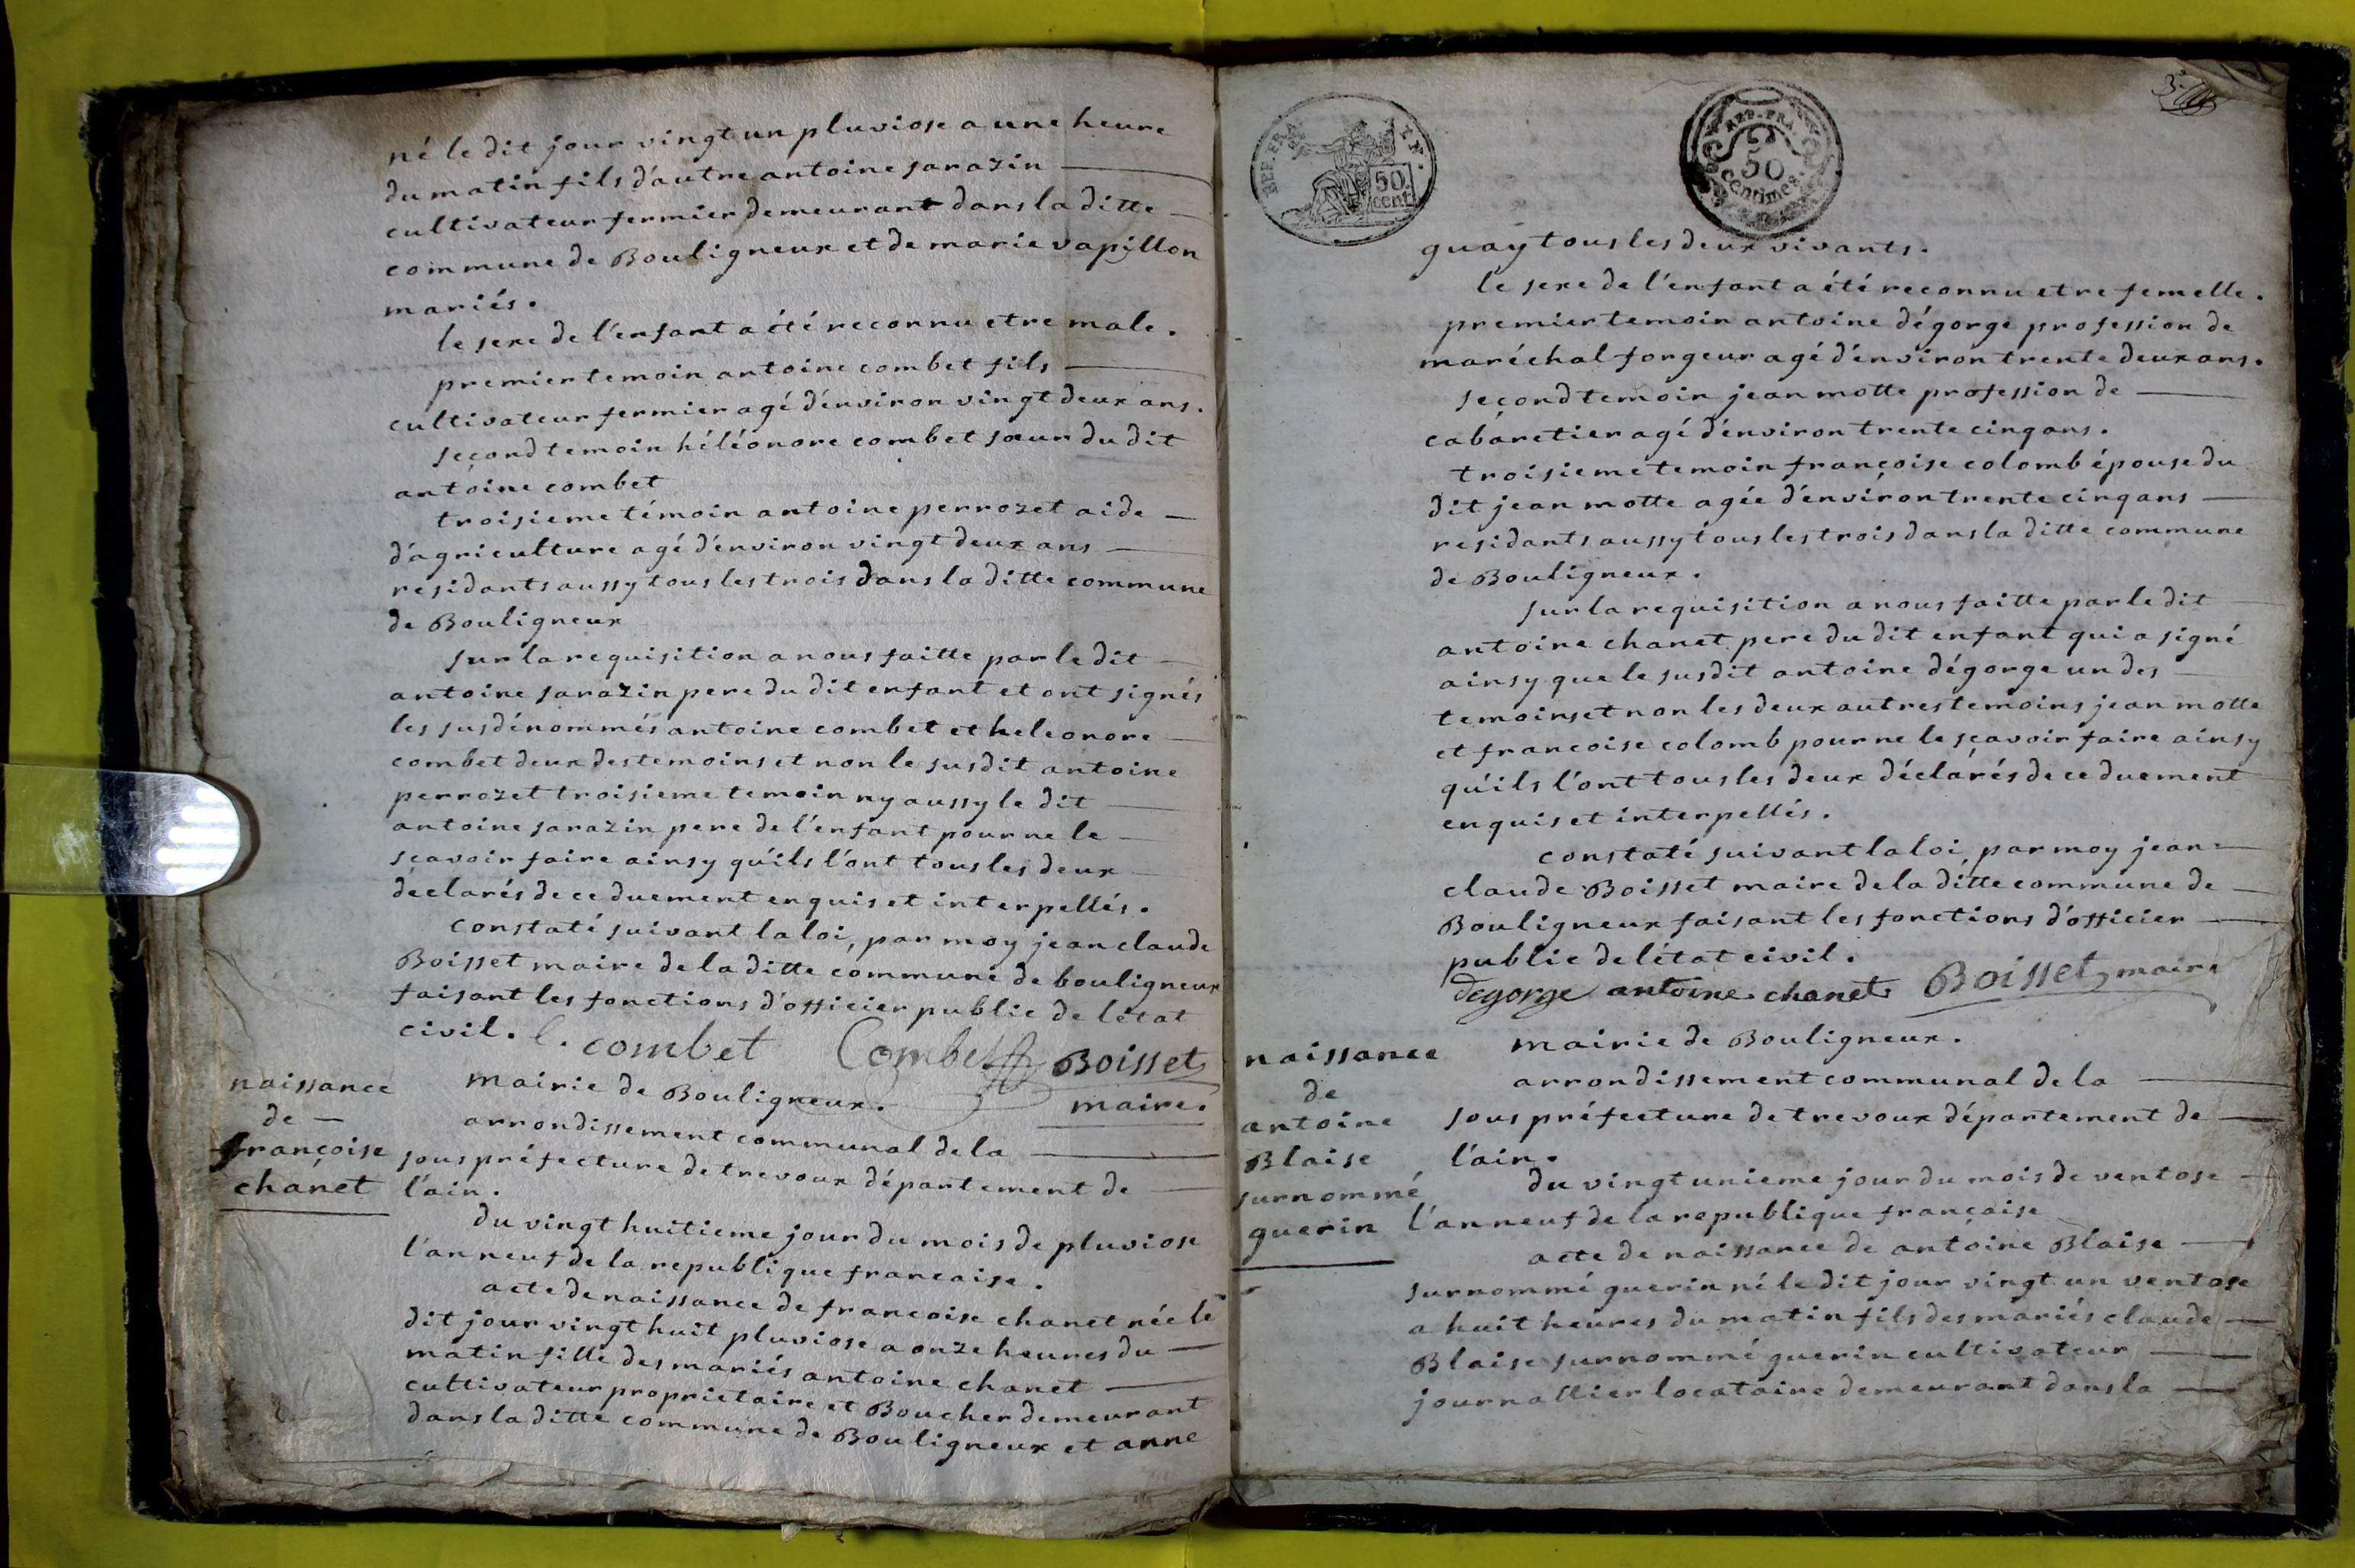 né le dit jour vingt un pluviose a une heure
du matin fils d'autre antoine sarazin
cultivateur fermier demeurant dans la ditte
commune de Bouligneux et de marie vapillon
mariés.
le sexe de l'enfant a été reconnu etre male.
premier temoin antoine combet fils
cultivateur fermier agé d'énviron vingt deux ans.
second temoin héléonore combet sœur du dit
antoine combet
troisieme témoin antoine perrozet aide
d'agriculture agé d'énviron vingt deux ans
residants aussy tous les trois dans la ditte commune
de Bouligneux
sur la requisition a nous faitte par le dit
antoine sarazin pere du dit enfant et ont signés
les susdénommés antoine combet et heleonore
combet deux des temoins et non le susdit antoine
perrozet troisieme temoin ny aussy le dit
antoine sarazin pere de l'enfant pour ne le
sçavoir faire ainsy qu'ils l'ont tous les deux
déclarés de ce duement enquis et interpellés.
constaté suivant la loi, par moy jean claude
Boisset maire de la ditte commune de bouligneux
faisant les fonctions d'officier public de létat
civil. l. combet Combet Boisset
maire.
naissance
de
françoise
chanet
mairie de Bouligneux.
arrondissement communal de la
sous préfecture de trevoux département de
l'ain.
du vingt huitieme jour du mois de pluviose
l'an neuf de la republique francaise.
acte de naissance de francoise chanet née le
dit jour vingt huit pluviose a onze heures du
matin fille des mariés antoine chanet
cultivateur proprietaire et Boucher demeurant
dans la ditte commune de Bouligneux et anne
3.
REP. FRA.
50.
cent.
REP. FRA.
50
centimes.
guay tous les deux vivants.
le sexe de l'enfant a été reconnu etre femelle.
premier temoin antoine dégorge profession de
maréchal forgeur agé d'énviron trente deux ans.
second temoin jean motte profession de
cabaretier agé d'énviron trente cinq ans.
troisieme temoin françoise colomb épouse du
dit jean motte agée d'énviron trente cinq ans
residants aussy tous les trois dans la ditte commune
de Bouligneux.
sur la requisition a nous faitte par le dit
antoine chanet pere du dit enfant qui a signé
ainsy que le susdit antoine dégorge un des
temoins et non les deux autres temoins jean motte
et francoise colomb pour ne le sçavoir faire ainsy
qu'ils l'ont tous les deux déclarés de ce duement
enquis et interpellés.
constaté suivant la loi, par moy jean=
claude Boisset maire de la ditte commune de
Bouligneux faisant les fonctions d'officier
public de létat civil.
degorge antoine chanet Boisset maire
naissance
de
antoine
Blaise
surnommé
guerin
mairie de Bouligneux.
arrondissement communal de la
sous préfecture de trevoux département de
l'ain.
du vingt unieme jour du mois de ventose
l'an neuf de la republique française
acte de naissance de antoine Blaise
surnommé guerin né le dit jour vingt un ventose
a huit heures du matin fils des mariés claude
Blaise surnommé guerin cultivateur
journallier locataire demeurant dans la